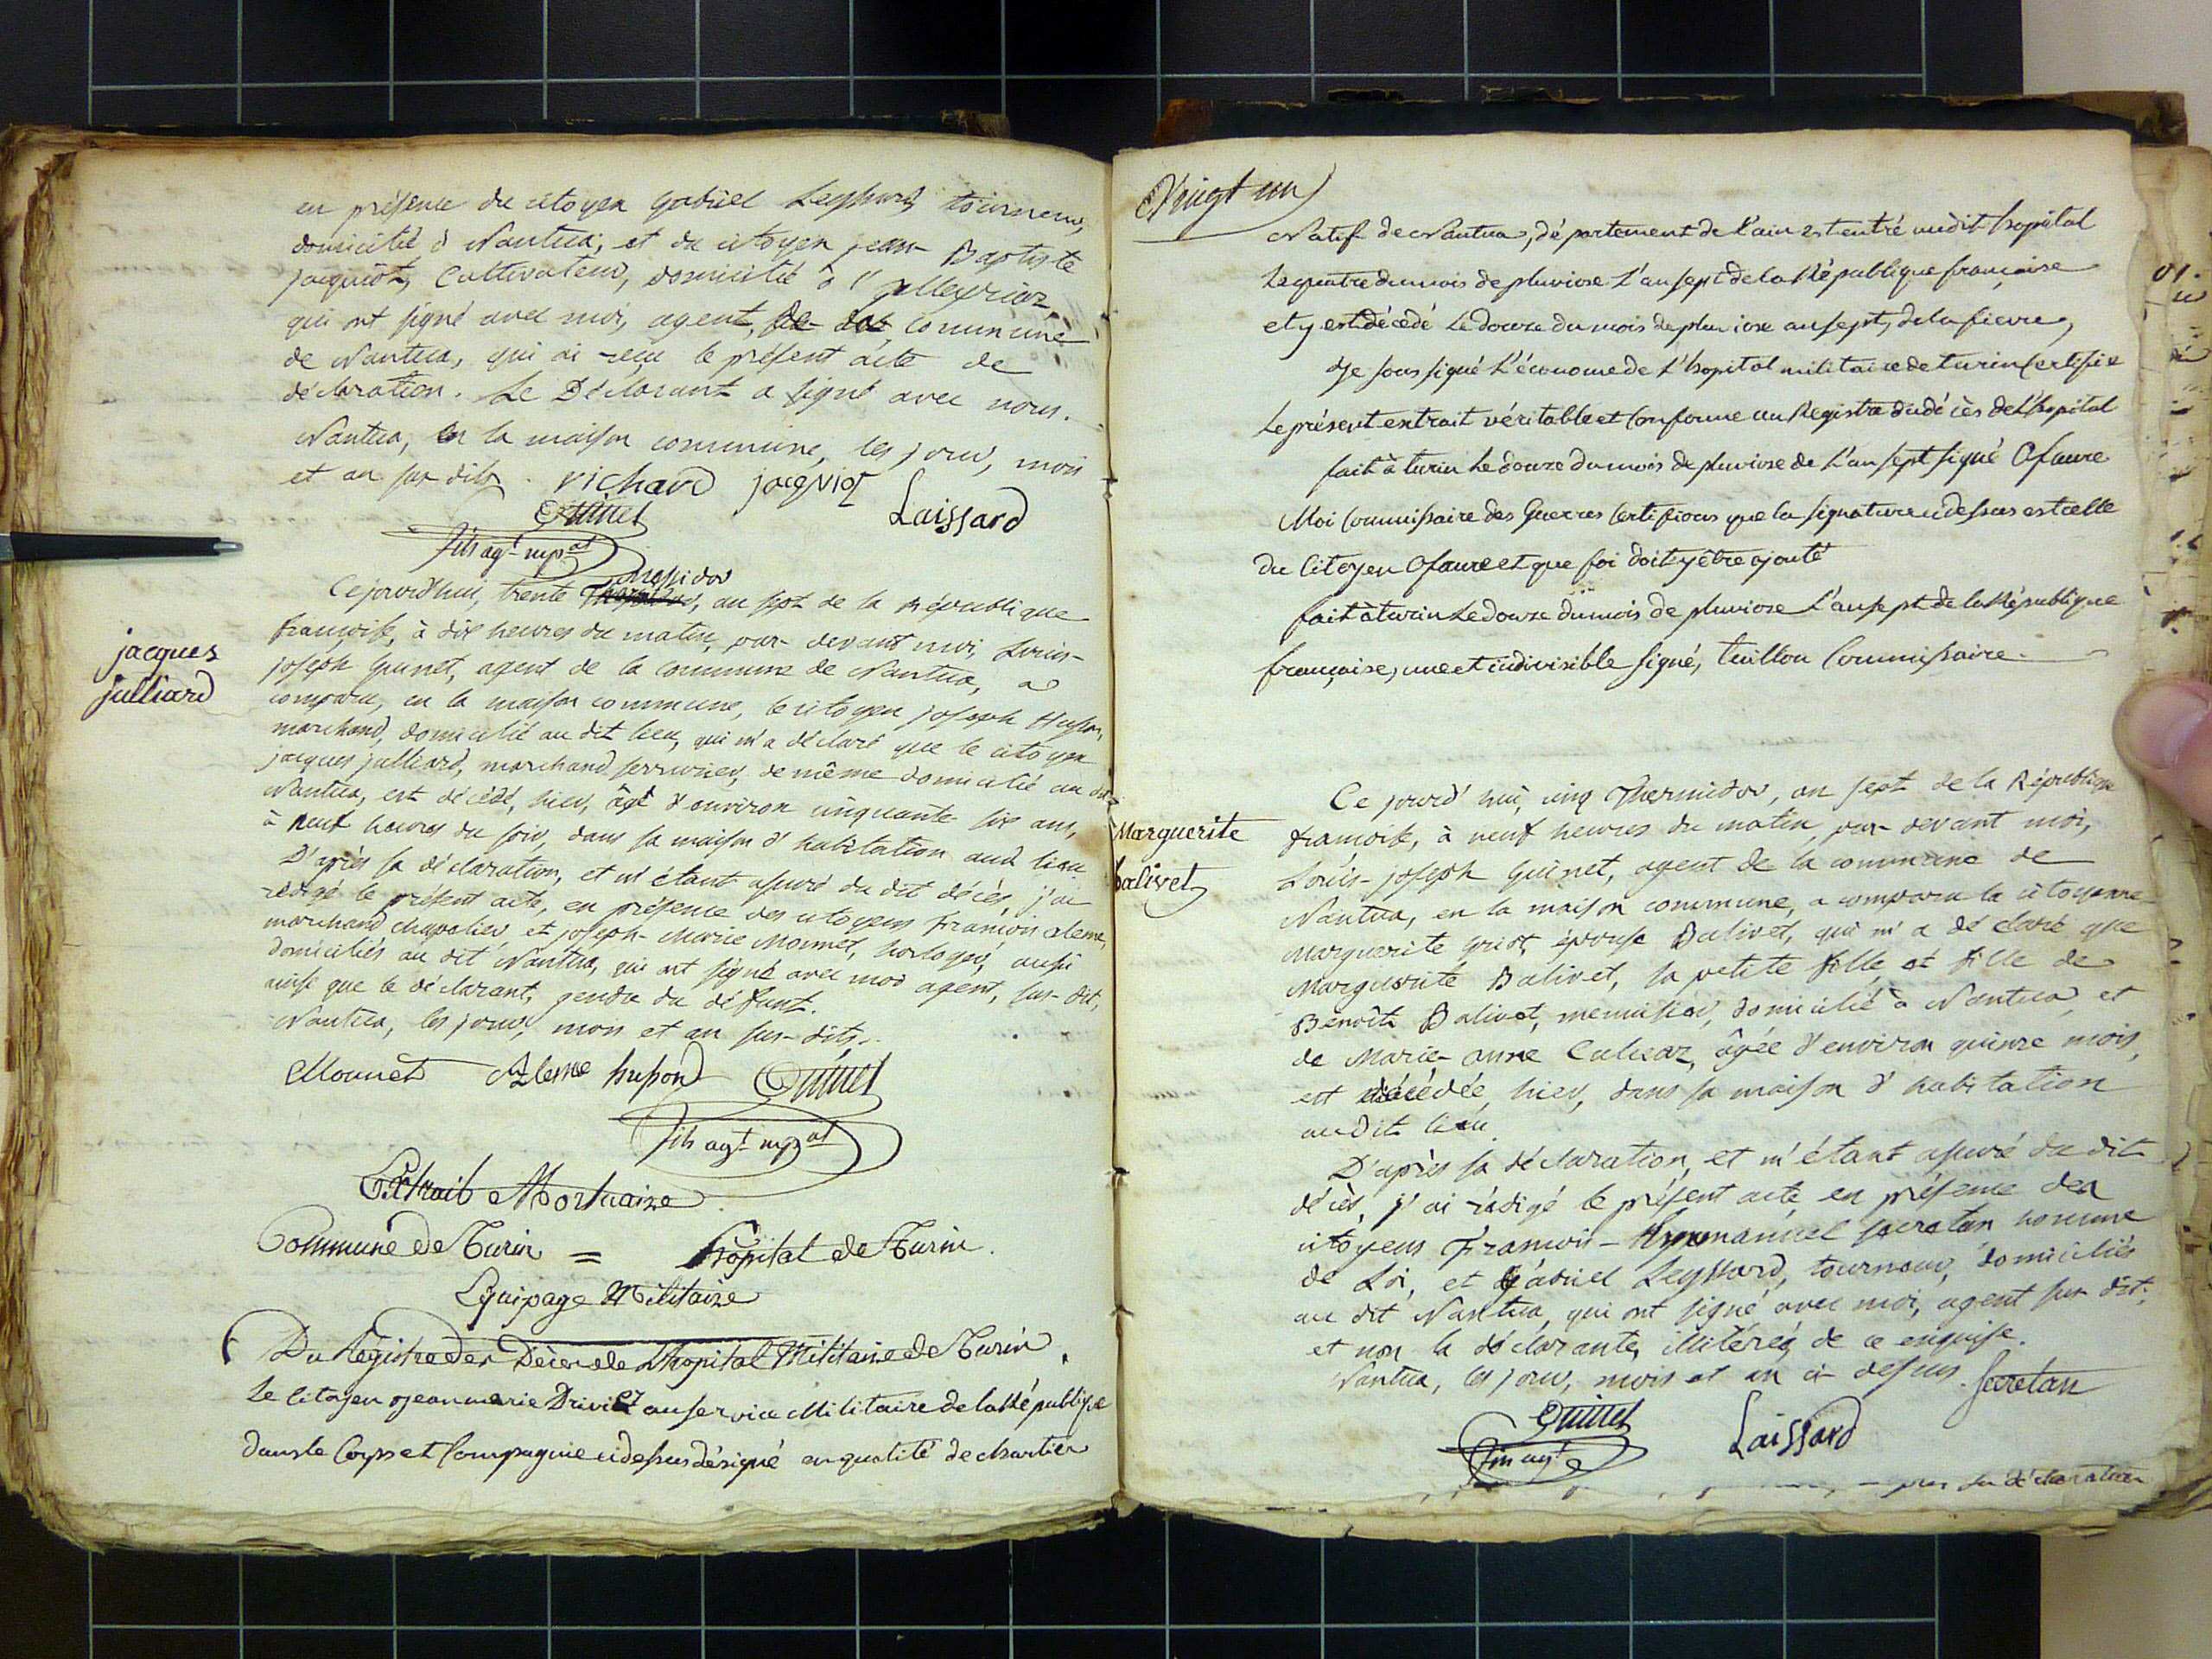 en présence du citoyen gabriel Leyssard tourneur,
domicilié à Nantua; et du citoyen jean-Baptiste
jacquiot, Cultivateur, domicilié à
qui ont signé avec moi, agent, de la Commune
de Nantua, qui ai reçu le présent acte de
déclaration. Le Déclarant a signé avec nous.
Nantua, en la maison commune, les jour, mois
et an sus dits. richard jacquiot
Laissard
Guinet
fils agt. mpal
Messidor
Ce jourd'hui, trente Thermidor, an sept de la République
françoise, à dix heures du matin, par-devant moi, Louis-
joseph Guinet, agent de la commune de Nantua, a
comparu, en la maison commune, le citoyen joseph Husson,
marchand, domicilié au dit lieu, qui m'a déclaré que le citoyen
jacques julliard, marchand serrurier, de même domicilié au dit
Nantua, est décédé, hier, âgé d'environ cinquante six ans,
à neuf heures du soir, dans sa maison d'habitation audit lieu
D'après sa déclaration, et m'étant assuré du dit décès, j'ai
rédigé le présent acte, en présence des citoyens François aleme,
marchand chapelier et joseph-Marie Mounet, horloger, aussi
domiciliés au dit Nantua, qui ont signé avec moi agent, sus-dit,
ainsi que le déclarant, gendre du défunt.
Nantua, les jour, mois et an sus-dits.
jacques
julliard
Mounet Aleme husson Guinet
fils agt. mpal
Extrait Mortuaire
Commune de Turin = hôpital de Turin.
Equipage Militaire
Du Régistre des Décès de L'hopital Militaire de Turin.
Le Citoyen jean marie Drivet au service Militaire de la République
dans le Corps et Compagnie ci dessus désigné en qualité de chartier
Vingt un
Natif de Nantua, département de l'ain est entré audit hopital
Le quatre du mois de pluviose L'an sept de la République française
et y est décédé Le douze du mois de pluviose an sept, de la fievre,
Je sous signé L'économe de L'hopital militaire de turin Certifie
Le présent extrait véritable et Conforme au Registre du décès de L'hopital
fait à turin Le douze du mois de pluviose de L'an sept signé Ofaure
Moi Commissaire des Guerres Certifions que la signature ci dessus est celle
du Citoyen Ofaure et que foi doit y être ajouté
fait à turin Le douze du mois de pluviose L'an sept de la République
française, une et indivisible signé, Tuillon Commissaire.
Marguerite
balivet
Ce jourd'hui, cinq Thermidor, an sept de la République
françoise, à neuf heures du matin, par-devant moi,
Louis-joseph Guinet, agent de la commune de
Nantua, en la maison commune, a comparu la citoyenne
Marguerite Griot, épouse Balivet, qui m'a déclaré que
Marguerite Balivet, sa petite fille, et fille de
Benoît Balivet, menuisier, domicilié à Nantua, et
de Marie-anne Culuaz, âgée d'environ quinze mois,
est décédée, hier, dans sa maison d'habitation
audit lieu.
D'après sa déclaration, et m'étant assuré du dit
décès, j'ai rédigé le présent acte, en présence des
citoyens François-Emmanuel secretan, homme
de Loi, et Gabriel Leyssard, tourneur, domiciliés
au dit Nantua, qui ont signé avec moi, agent sus dit,
et non la déclarante, illitérée, de ce enquise.
Nantua, les jour, mois et an ci-dessus. Secrétan
Guinet
fils agt
Laissard